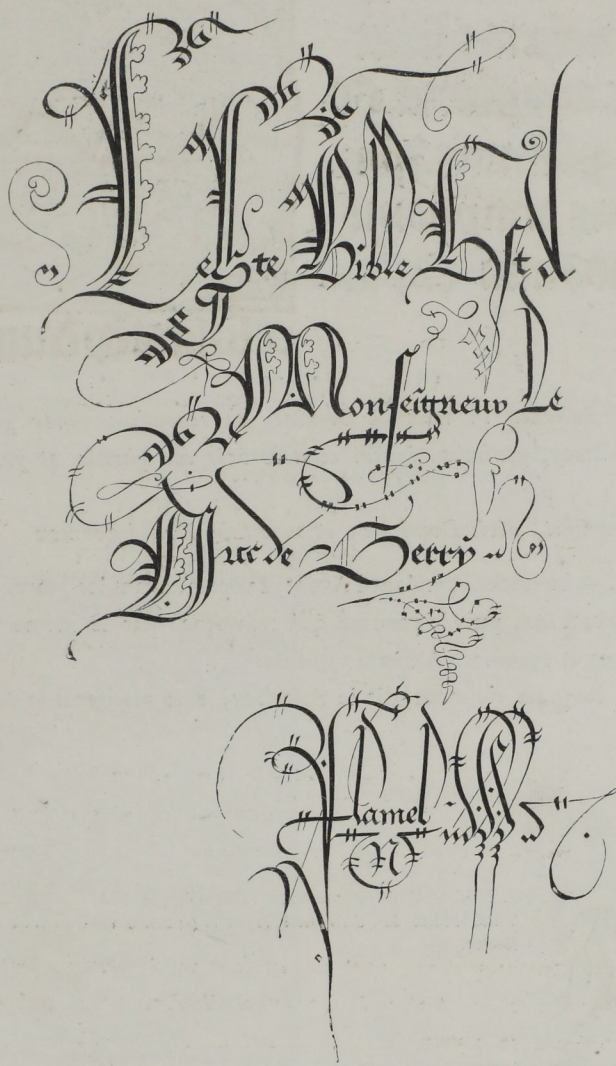 Ceste Bible Est a
Monseigneur Le
Duc de Berry
Flamel
N